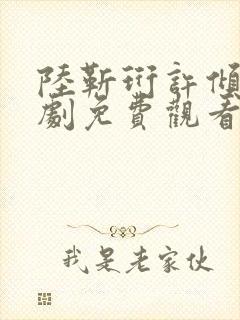 陸靳珩許傾
劇免費觀看
我是老家伙